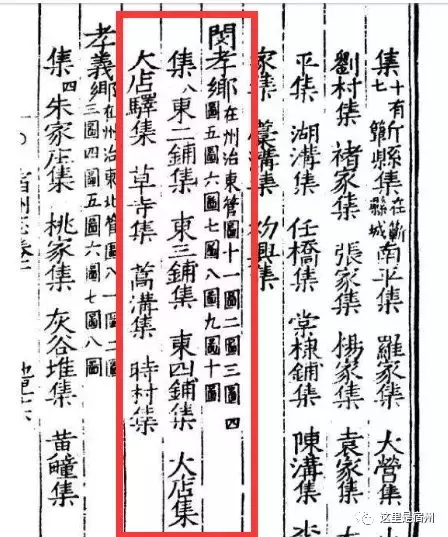 集十有七蘄縣集在蘄縣城南平集 羅家集 大營集
劉村集 褚家集 張家集 楊家集 袁家集
平集 湖溝集 任橋集 棠棣鋪集 陳溝集
家集 溝集 興集
閔孝鄉在州治東管圖十一圖二圖三圖四圖五圖六圖七圖八圖九圖十圖
集八 東二鋪集 東三鋪集 東四鋪集 大店集
大店驛集 草寺集 蒿溝集 時村集
孝義鄉在州治東北管圖八一圖二圖三圖四圖五圖六圖七圖八圖
集四 朱家庄集 桃家集 灰谷堆集 黃疃集
宿州志卷
这里是宿州